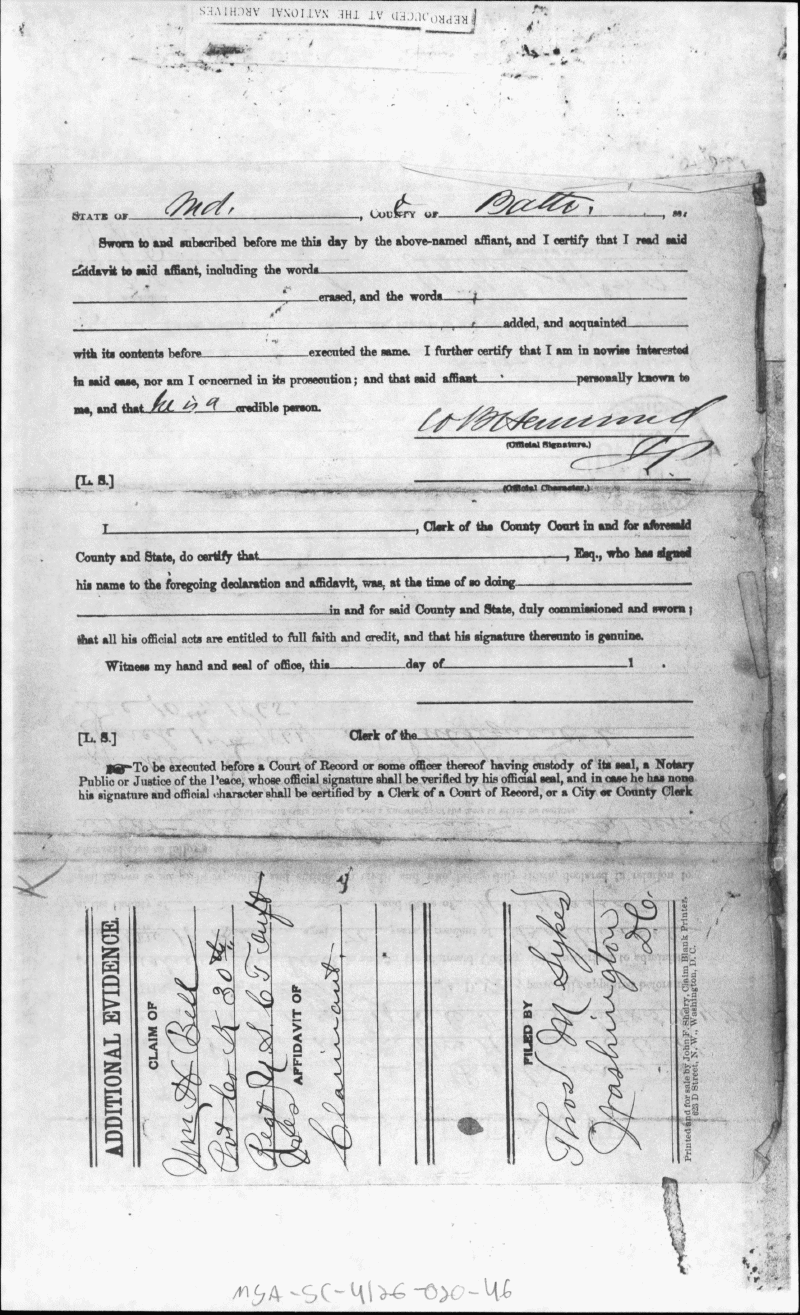 REPRODUCED AT THE NATIONAL ARCHIVES
STATE OF Md. , COUNTY OF Balto. , ss:
Sworn to and subscribed before me this day by the above-named affiant, and I certify that I read said
affidavit to said affiant, including the words
erased, and the words
added, and acquainted
with its contents before executed the same. I further certify that I am in nowise interested
in said case, nor am I concerned in its prosecution; and that said affiant personally known to
me, and that he is a credible person.
(Official Signature.)
J P.
[L. S.]
(Official Character.)
I , Clerk of the County Court in and for aforesaid
County and State, do certify that , Esq., who has signed
his name to the foregoing declaration and affidavit, was, at the time of so doing
in and for said County and State, duly commissioned and sworn;
that all his official acts are entitled to full faith and credit, and that his signature thereunto is genuine.
Witness my hand and seal of office, this day of 1 .
[L. S.]
Clerk of the
To be executed before a Court of Record or some officer thereof having custody of its seal, a Notary
Public or Justice of the Peace, whose official signature shall be verified by his official seal, and in case he has none
his signature and official character shall be certified by a Clerk of a Court of Record, or a City or County Clerk
K
ADDITIONAL EVIDENCE.
CLAIM OF
Wm H Bell
Pvt Co K 30th
Regt U S C T
AFFIDAVIT OF
Claimant.
FILED BY
Thos M Sykes
Washington
D C.
Printed and for sale by John F. Sheiry, Claim Blank Printer,
623 D Street, N. W., Washington, D. C.
MSA-SC-4126-020-46